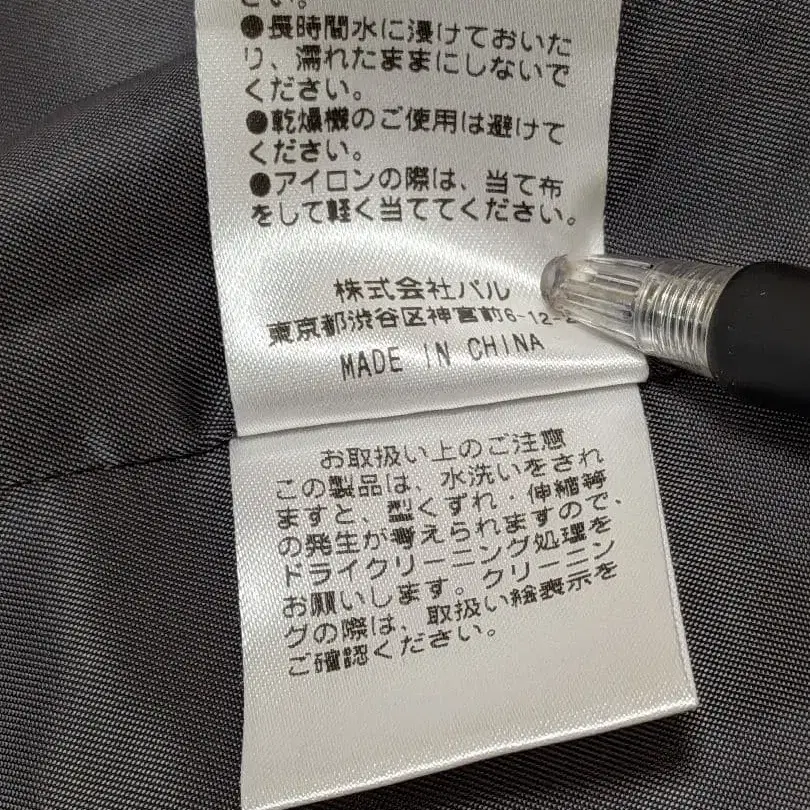 さい。
●長時間水に浸けておいた
り、濡れたままにしないで
ください。
●乾燥機のご使用は避けて
ください。
●アイロンの際は、当て布
をして軽く当ててください。
株式会社パル
東京都渋谷区神宮前6-12-2
MADE IN CHINA
お取扱い上のご注意
この製品は、水洗いをされ
ますと、型くずれ・伸縮等
の発生が考えられますので、
ドライクリーニング処理を
お願いします。クリーニン
グの際は、取扱い絵表示を
ご確認ください。